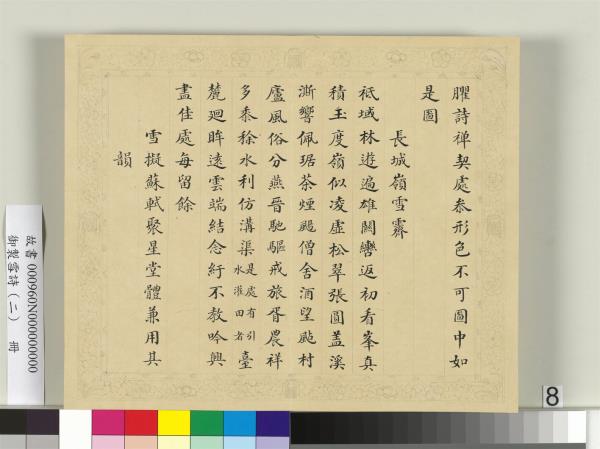 臞詩禅契處叅形色不可圖中如
是圖
長城嶺雪霽
祇域林遊遍雄關轡返初看峯真
積玉度嶺似凌虛松翠張圓盖溪
澌響佩琚茶煙颺僧舍酒望颭村
廬風俗分燕晉馳驅戒旅胥農祥
多黍稌水利仿溝渠是處有引水淮田者臺
麓廻眸遠雲端結念紆不教吟興
盡佳處每留餘
雪擬蘇軾聚星堂體兼用其
韻
故書000960N000000000
御製雪詩(二) 冊
8